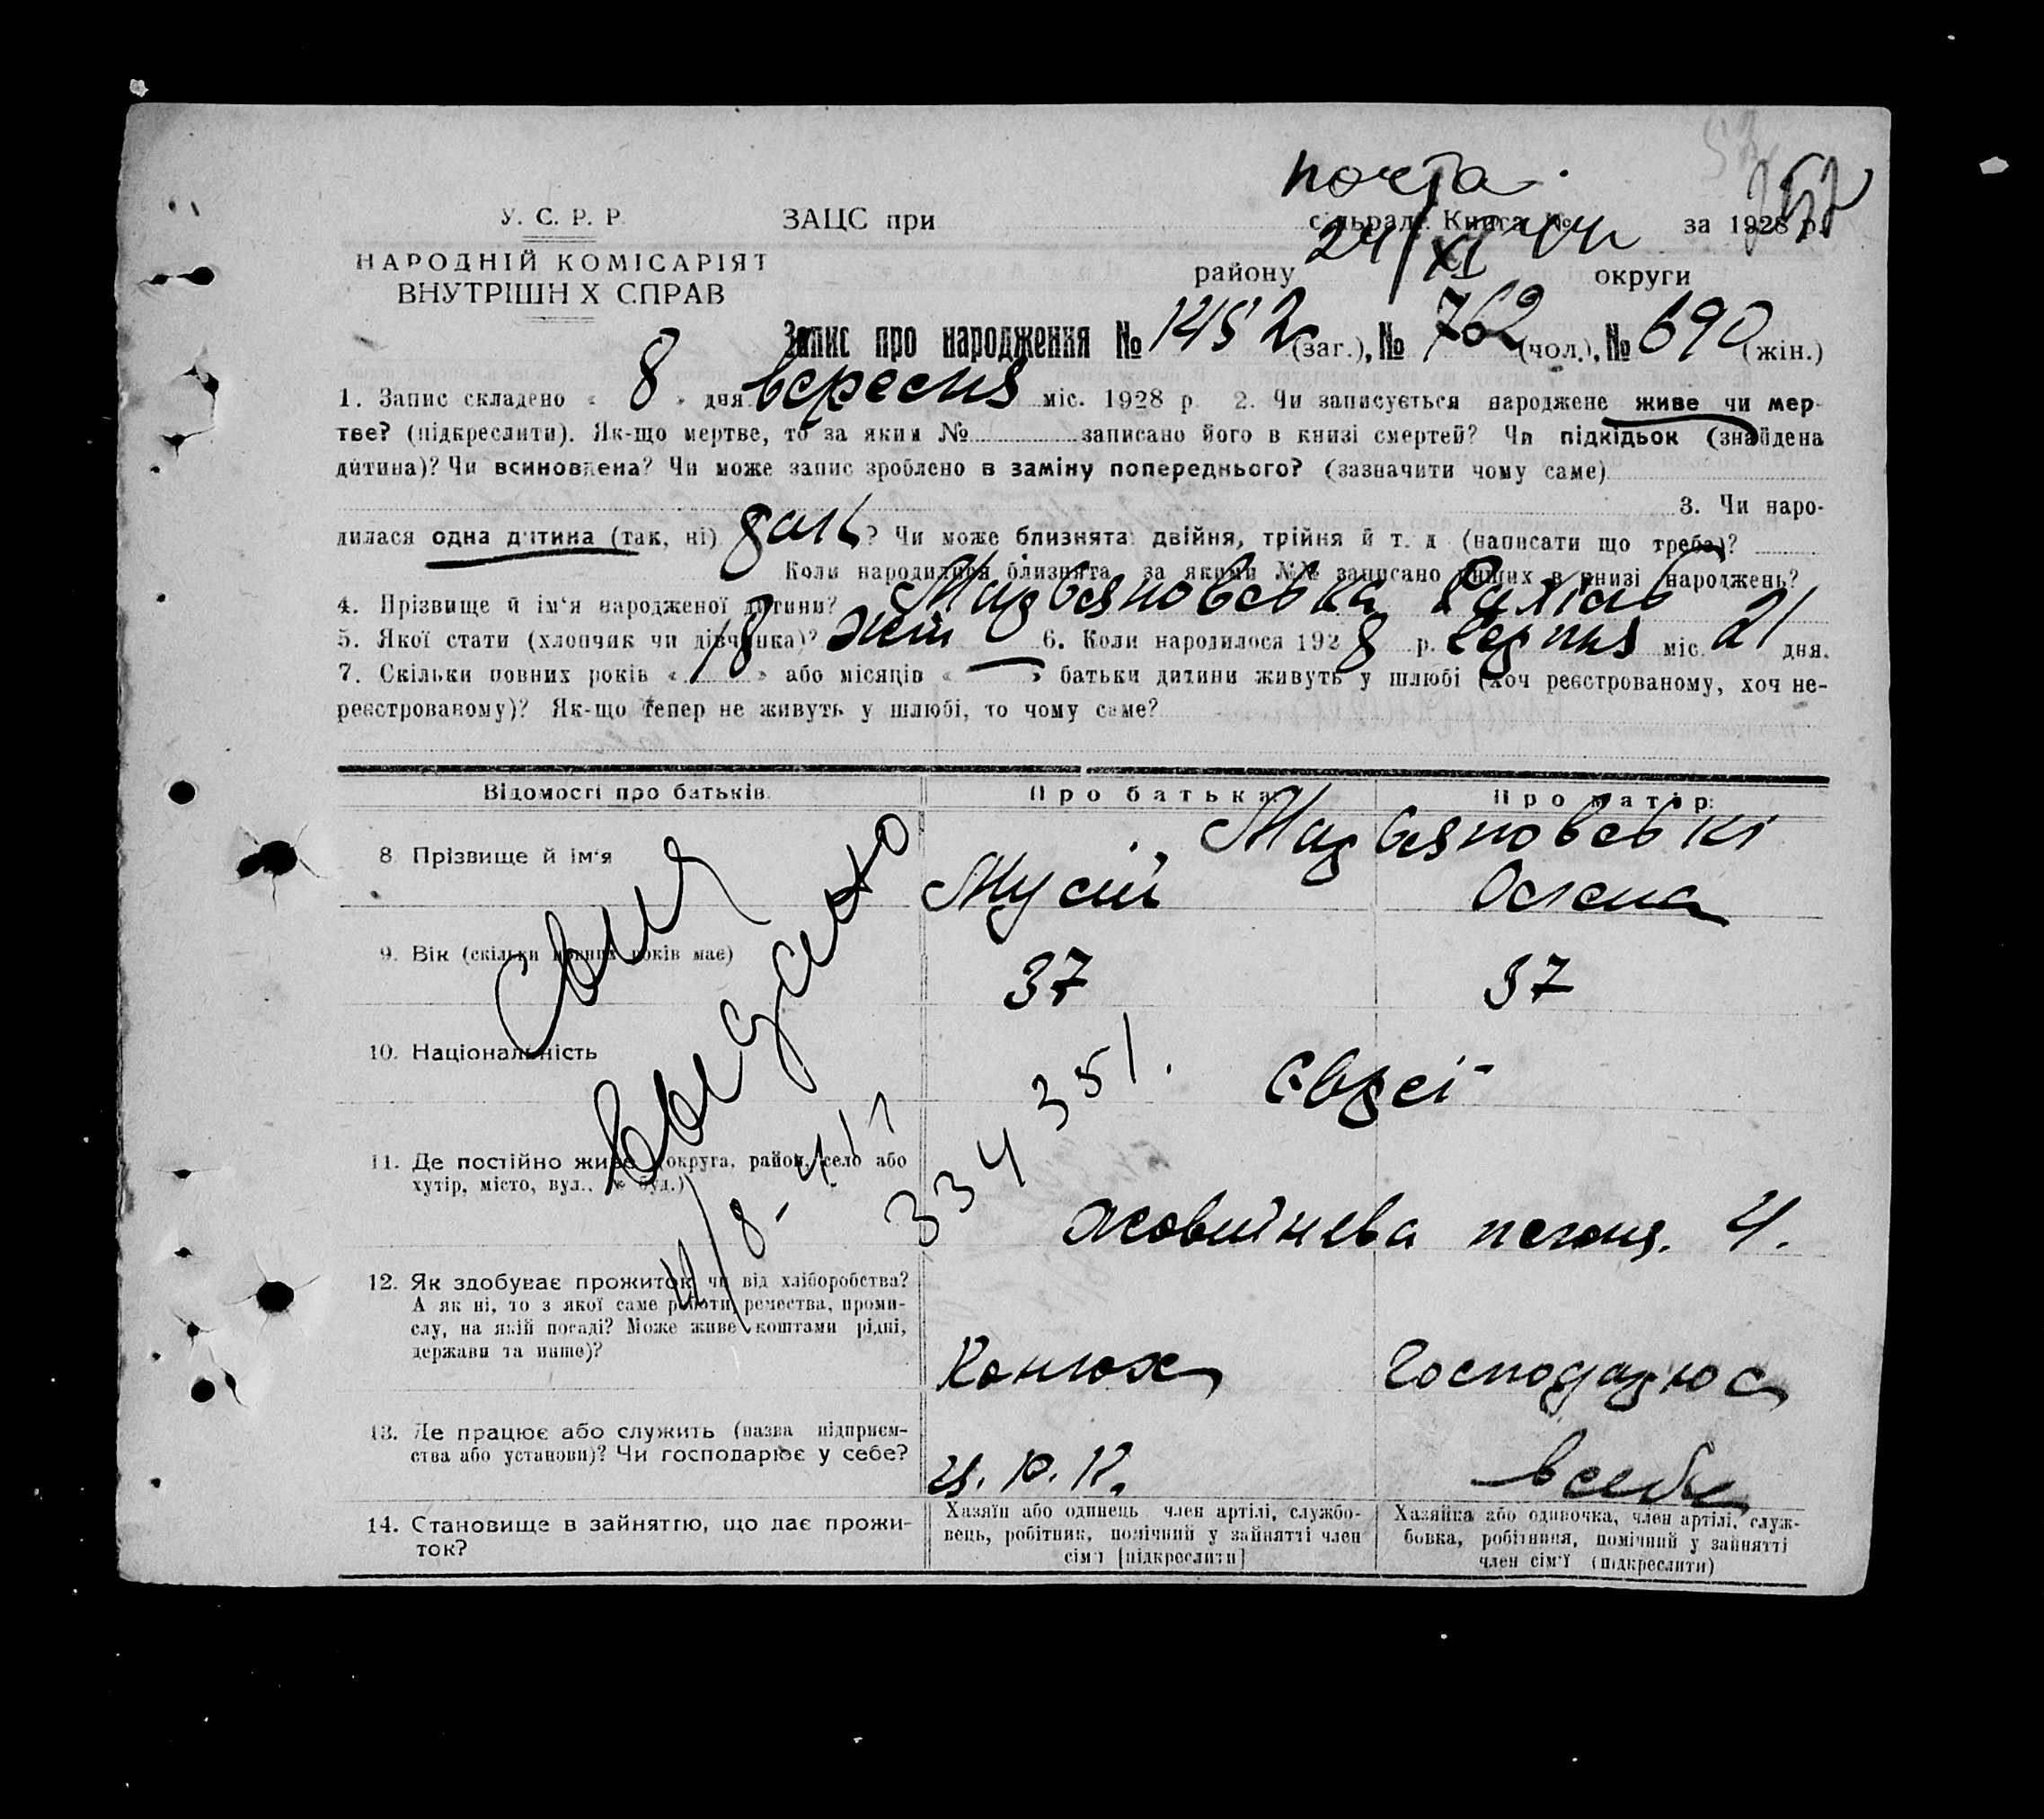 почта.
У. С. Р. Р. ЗАЦС при сільраді. Книга № за 1928 р.
24/XI 44
НАРОДНІЙ КОМІСАРІЯТ району округи
ВНУТРІШН Х СПРАВ
Запис про народження № 1452 (заг.), № 762 (чол.), № 690 (жін.)
1. Запис складено « 8 » дня вересня міс. 1928 р 2. Чи записується народжене живе чи мер-
тве? (підкреслити). Як-що мертве, то за яким № записано його в книзі смертей? Чи підкідьок (знайдена
дитина)? Чи всиновлена? Чи може запис зроблено в заміну попереднього? (зазначити чому саме)
3. Чи наро-
дилася одна дитина (так, ні) ? Чи може близнята: двійня, трійня й т. д (написати що треба)?
Коли народилися близнята, за якими №№ записано инших в книзі народжень?
4. Прізвище й ім'я народженої дитини?
5. Якої стати (хлопчик чи дівчинка)? жін 6. Коли народилося 1928 р. серпня міс. 21 дня.
7. Скільки повних років « 18 » або місяців « — » батьки дитини живуть у шлюбі (хоч реєстрованому, хоч не-
реєстрованому)? Як-що тепер не живуть у шлюбі, то чому саме?
Відомості про батьків. Про батька: Про матір:
8 Прізвище й ім'я
Мусій
9. Вік (скільки повних років має) 37 37
10. Національність євреї
11. Де постійно живе (округа, район, село або
хутір, місто, вул., № буд.)
Жовтнева 4.
12. Як здобуває прожиток чи від хліборобства?
А як ні, то з якої саме роботи, ремества, проми-
слу, на якій посаді? Може живе коштами рідні,
держави та инше)?
Конюх
13. Де працює або служить (назва підприєм-
ства або установи)? Чи господарює у себе?
в себе
14. Становище в зайняттю, що дає прожи-
ток?
Хазяїн або одинець член артілі, службо-
вець, робітник, помічний у зайнятті член
сім'ї [підкреслити]
Хазяйка або одиночка, член артілі, служ-
бовка, робітниця, помічний у зайнятті
член сім'ї (підкреслити)
выдано
334351.